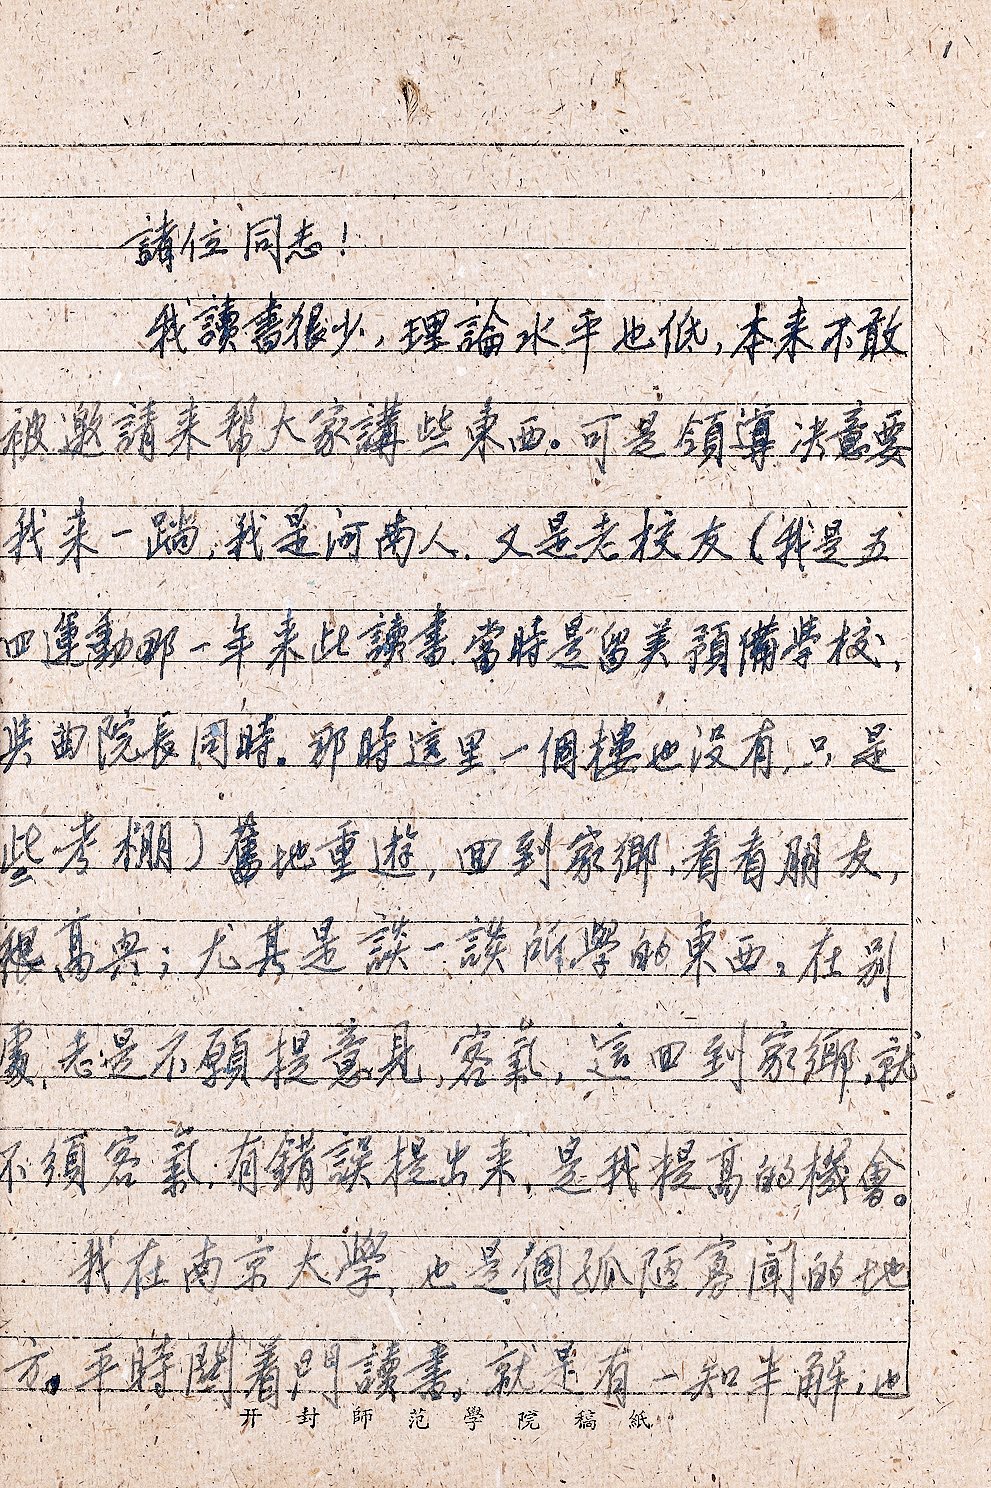 1
諸位同志！
我讀書很少，理論水平也低，本来不敢
被邀請来帮大家講些東西。可是領導决意要
我来一趟，我是河南人，又是老校友（我是五
四運動那一年来此讀書，當時是留美預備學校，
與曲院長同時。那時這里一個樓也没有，只是
些考棚）舊地重遊，回到家鄉，看看朋友，
很高兴；尤其是談一談所學的東西，在别
處，老是不願提意見，客氣，這回到家鄉，就
不須客氣，有錯誤提出来，是我提高的機會。
我在南京大學，也是個孤陋寡聞的地
方。平時關着門讀書，就是有一知半解，也
开封師范學院稿紙